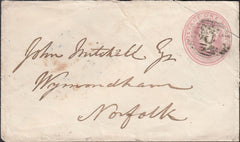 John Mitchell Esq
Wymondham
Norfolk